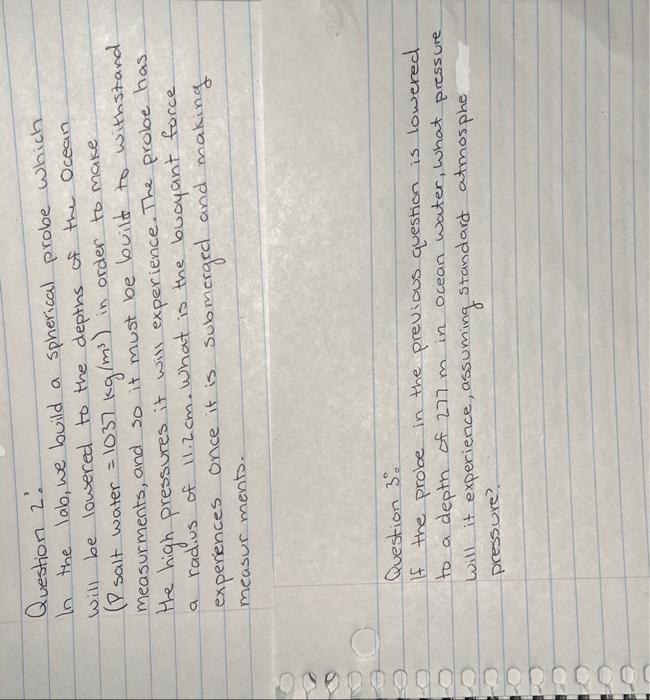 Question 2:
In the lab, we build a spherical probe which
will be lowered to the depths of the ocean
(ρ salt water = 1037 kg/m³) in order to make
measurments, and so it must be built to withstand
the high pressures it will experience. The probe has
a radius of 11.2cm. What is the buoyant force
experiences once it is submerged and making
measurments.
Question 3:
If the probe in the previous question is lowered
to a depth of 277 m in ocean water, what pressure
will it experience, assuming standard atmosphe
pressure?